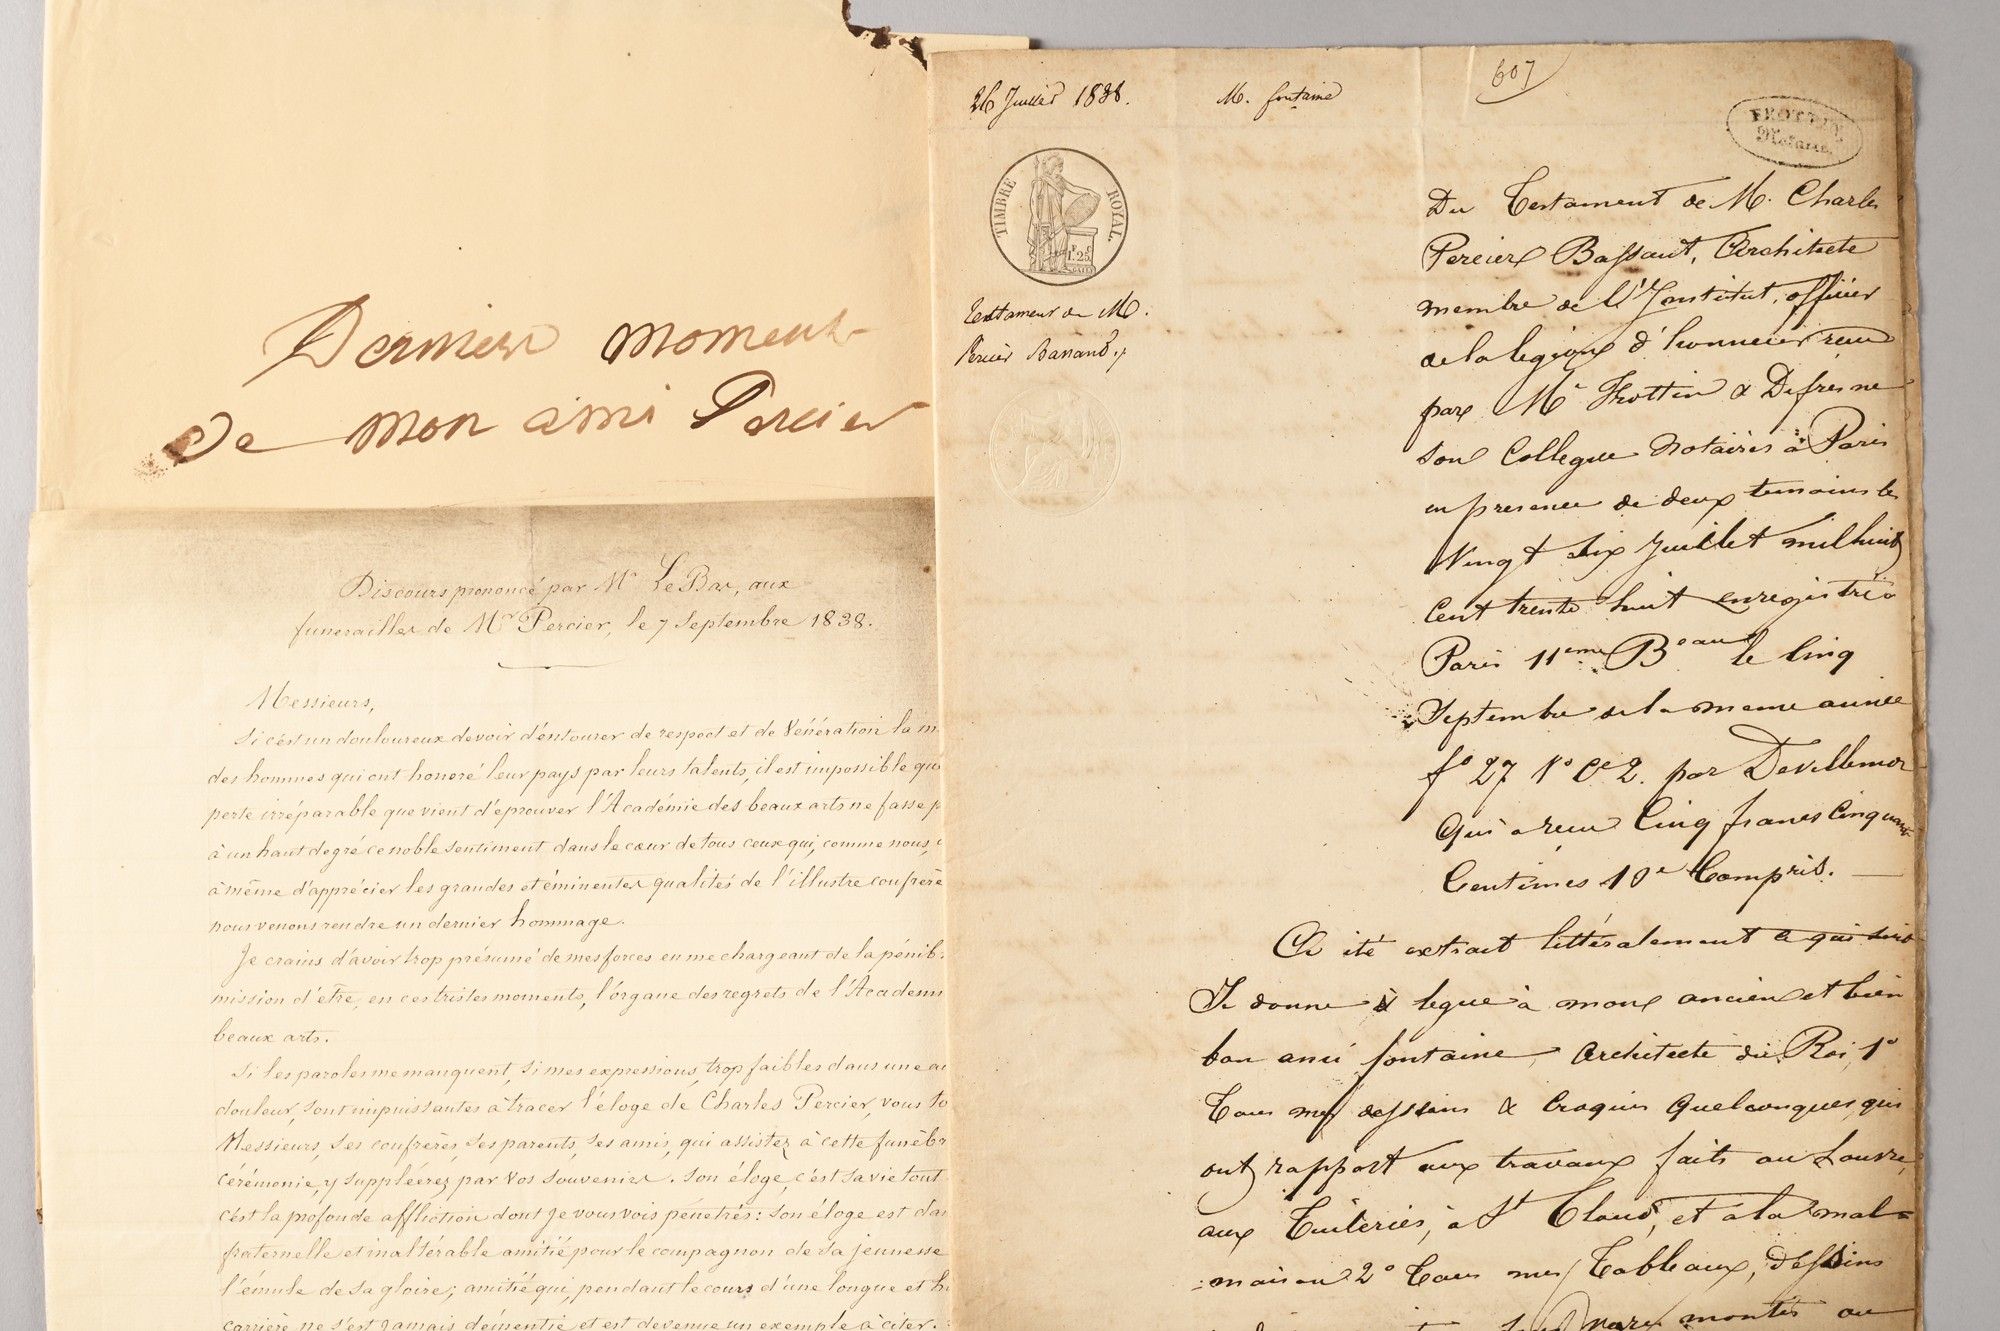 Dernier moment
de mon ami Percier
Discours prononcé par Mr Le Bas, aux
funerailles de Mr Percier, le 7 Septembre 1838.
Messieurs,
Si c'est un douloureux devoir d'entourer de respect et de Vénération la m
des hommes qui ont honoré leur pays par leurs talents, il est impossible que
perte irréparable que vient d'éprouver l'Académie des beaux arts ne fasse p
à un haut degré ce noble sentiment dans le cœur de tous ceux qui, comme nous,
à même d'apprécier les grandes et éminentes qualités de l'illustre confrère
nous venons rendre un dernier hommage.
Je crains d'avoir trop présumé de mes forces en me chargeant de la pénib
mission d'être, en ces tristes moments, l'organe des regrets de l'Academi
beaux arts.
Si les paroles me manquent, si mes expressions, trop faibles dans une au
douleur, sont impuissantes à tracer l'éloge de Charles Percier, vous to
Messieurs, ses confrères, ses parents, ses amis, qui assistez à cette funèbr
cérémonie, y suppléerez par vos souvenirs. Son éloge, c'est sa vie tout
c'est la profonde affliction dont je vous vois pénétrés: son éloge est da
fraternelle et inaltérable amitié pour le compagnon de sa jeunesse
l'émule de sa gloire; amitié qui, pendant le cours d'une longue et h
carrière ne s'est jamais démentie et est devenue un exemple à citer.
26 Juillet 1838.
M. fontaine
607
TIMBRE ROYAL.
1F. 25C
Testament de M.
Percier Bassand.
Du Testament de M. Charles
Percier Bassant, Architecte
membre de l'Institut, officier
de la legion d'honneur reçu
par Me Frottin & Defresne
son Collegue Notaires à Paris
en presence de deux temoins le
Vingt six Juillet mil huit
Cent trente huit enregistré à
Paris 11eme Beau le Cinq
Septembre de la meme année
fo 27 Vo Ce 2. par Devillemor
Qui a reçu Cinq francs Cinquante
Centimes 10e Compris.
A été extrait littéralement ce qui suit
Je donne & legue à mon ancien et bien
bon ami fontaine, Architecte du Roi, 1o
Tous mes dessins & Croquis Quelconques, qui
ont rapport aux travaux faits au Louvre,
aux Tuileries, à St Cloud, et à la Mal=
=maison 2o Tous mes Tableaux, dessins
montés ou